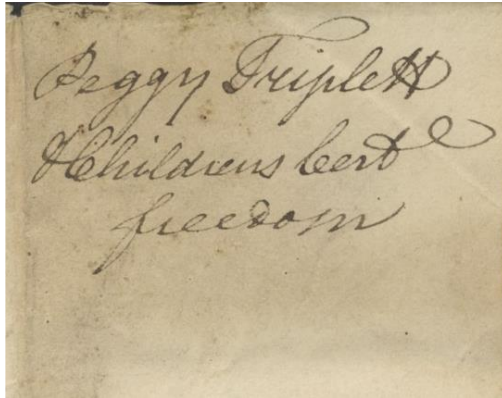 Peggy Triplett
& Childrens Cert
freedom